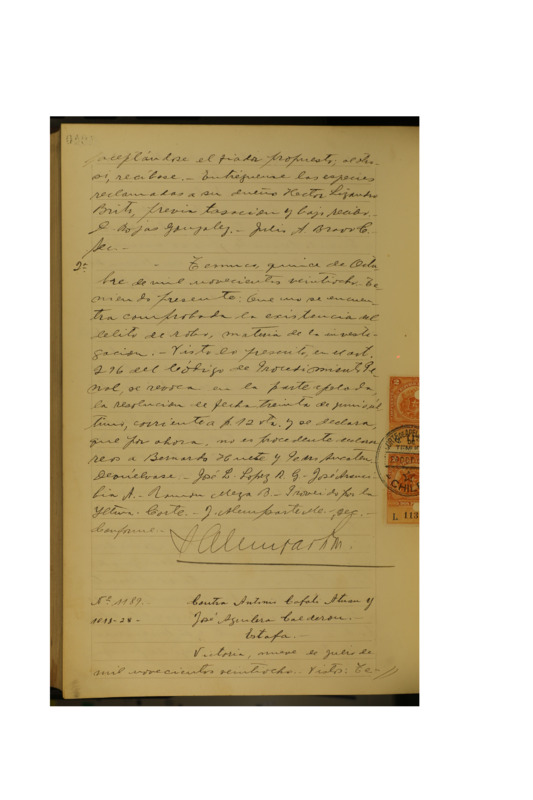 aceptándose el fiador propuesto; al otro-
sí, recíbase. - Entréguense las especies
reclamadas a su dueño Hector Lizandro
Brito, previa tasación y bajo recibo. -
E Rojas Gonzalez. - Julio A Bravo C.
Sec. -
2ª
Temuco, quince de Octu-
bre de mil novecientos veintiocho. Te-
niendo presente: Que no se encuen-
tra comprobada la existencia del
delito de robo, materia de la investi-
gación. - Visto lo presento, en el art.
276 del Código de Procedimiento Pe-
nal, se revoca en la parte apelada
la resolución de fecha treinta de junio úl-
timo, corriente a f. 12 vta. y se declara,
que por ahora, no es procedente encarar
reos a Bernardo Huete y Pedro
Devuélvase. José L. Lopez A. G. - José
A. - Ramon Meza B. - Proveído por la
Iltma. Corte. - J. Alemparte. Sec. -
Conforme. -
J Alemparte
Nº 1189. -
Contra Antonio Cafati Atuan y
1013-28 -
José Aguilera Calderon. -
Estafa. -
Victoria, nueve de julio de
mil novecientos veintiocho. - Vistos: Te-
2
CORTE DE
DE
TEMUCO
CHILE
L 113